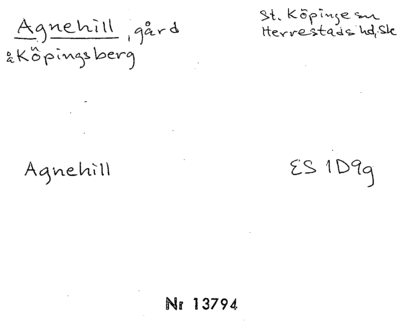 Agnehill, gård
å Köpingsberg
St. Köpinge sn
Herrestads hd, Sk
Agnehill
ES 1D9g
Nr 13794